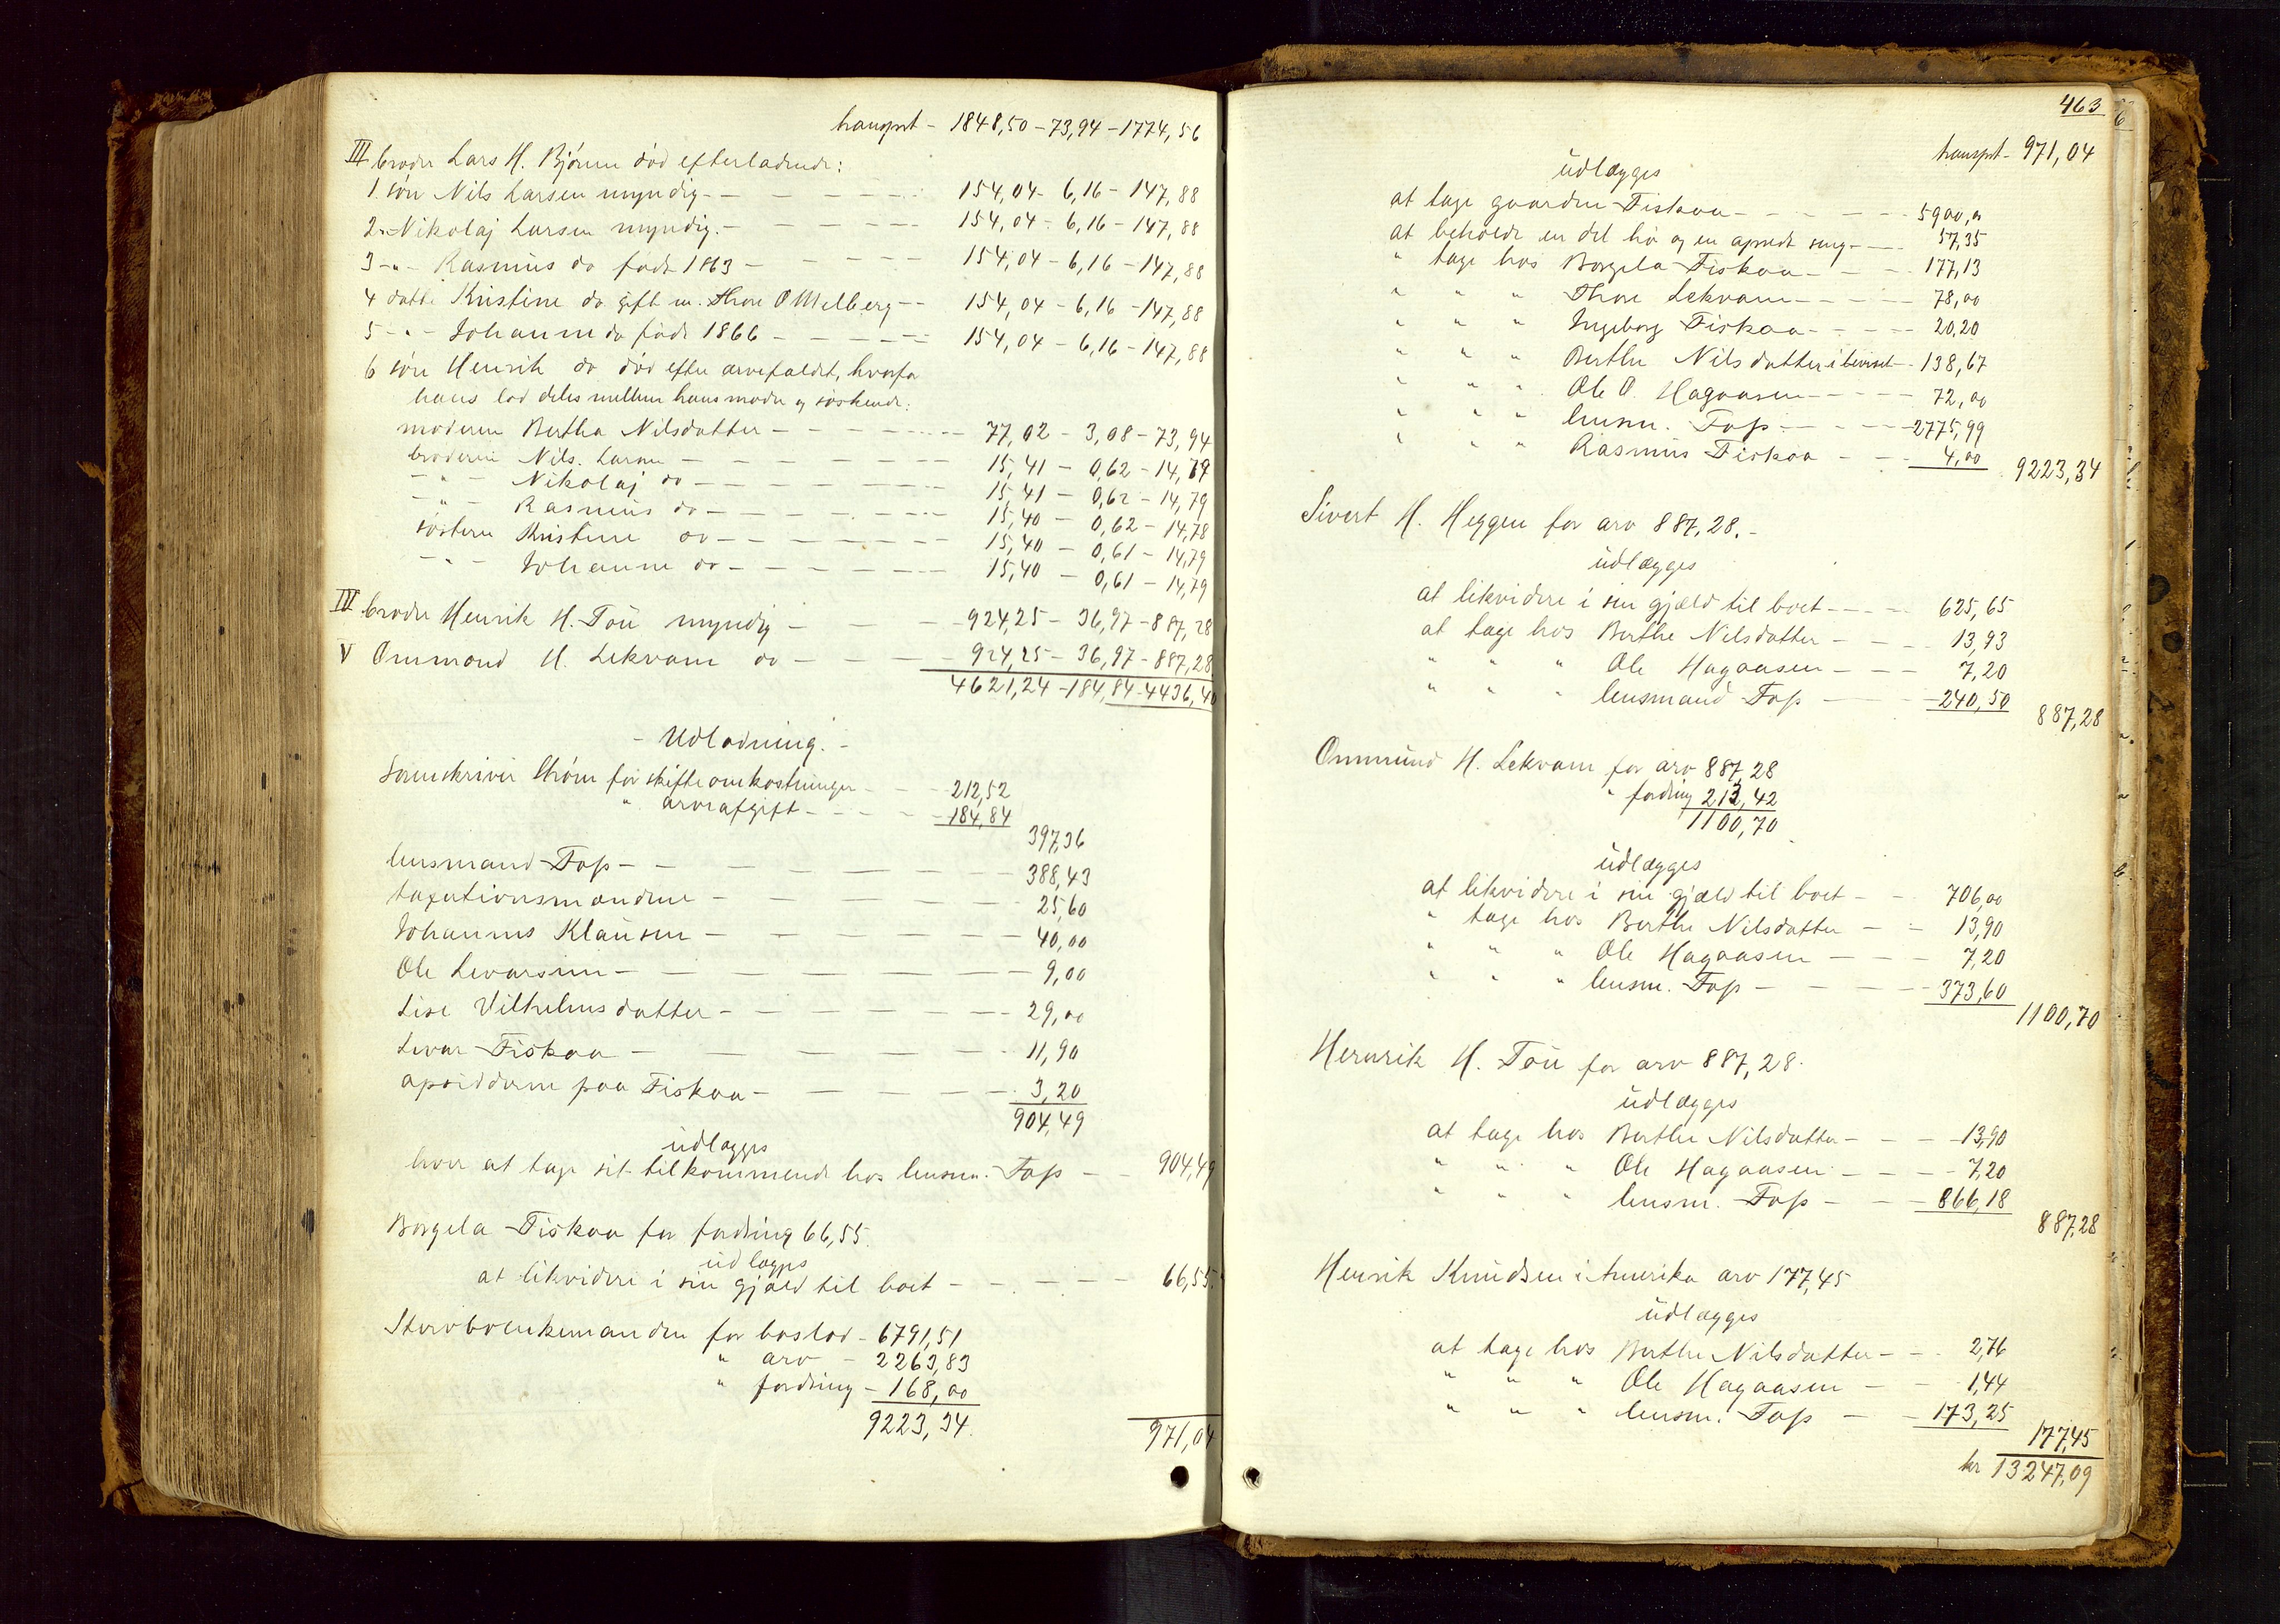 transprt - 1848,50 - 73,94 - 1774,56
III broder Lars H. Bjørnn død efterladende:
1. søn Nils Larsen myndig - - - - - 154,04 - 6,16 - 147,88
2 - Nikolaj Larsen myndig. - - - - - 154,04 - 6,16 - 147,88
3 - " - Rasmus do født 1863 - - - - - 154,04 - 6,16 - 147,88
4 datte Kristine do gift m. Thore O Melberg - - 154,04 - 6,16 - 147,88
5 - " - Johanne do født 1866 - - - - - 154,04 - 6,16 - 147,88
6 søn Henrik do død efter arvefaldet, hvorfor
hans lod deles mellem hans moder og søskende:
moderen Bertha Nilsdatter - - - - - 77,02 - 3,08 - 73,94
broderen Nils Larsen - - - - - 15,41 - 0,62 - 14,79
- " - Nikolaj do - - - - - 15,41 - 0,62 - 14,79
- " - Rasmus do - - - - - 15,40 - 0,62 - 14,78
søsteren Kristine do - - - - - 15,40 - 0,61 - 14,79
- " - Johanne do - - - - - 15,40 - 0,61 - 14,79
IV broder Henrik H. Tou myndig - - - 924,25 - 36,97 - 887,28
V Ommond H. Lekvam do - - - 924,25 - 36,97 - 887,28
4621,24 - 184,84 - 4436,40
- Udlodning. -
Sorenskriver Strøm for skifteomkostninger - - 212,52
" arveafgift - - - - 184,84
397,36
lensmand Fop - - - - - 388,43
taxationsmændene - - - - - 25,60
Johannes Klausen - - - - - 40,00
Ole Levarsen - - - - - 9,00
Lise Vilhelmsdatter - - - - - 29,00
Levar Fiskaa - - - - - 11,90
opsidderne paa Fiskaa - - - - - 3,20
904,49
udlægges
hver at tage sit tilkommende hos lensm. Fop - - 904,49
Borgela Fiskaa for fordring 66,55.
udlægges
at likvidere i sin gjæld til boet - - - - - 66,55.
Stervboenkemanden for boslod - 6791,51
" arv - 2263,83
" fordring - 168,00
9223,34.
971,04
463
transprt - 971,04
udlægges
at tage gaarden Fiskaa - - - - - 5900,00
at beholde en del hø og en opredt seng - - - 57,35
" tage hos Borgela Fiskaa - - - 177,13
" " " Thore Lekvam - - - - - 78,00
" " " Ingeborg Fiskaa - - - - 20,20
" " " Berthe Nilsdatter i beviset - 138,67
" " " Ole O. Hagaasen - - - - 72,00
" " " lensm. Fop - - - - 2775,99
" " " Rasmus Fiskaa - - - 4,00
9223,34
Sivert H. Heggen for arv 887,28. -
udlægges
at likvidere i sin gjæld til boet - - - - 625,65
at tage hos Berthe Nilsdatter - - - 13,93
" " " Ole Hagaasen - - - 7,20
" " " lensmand Fop - - - 240,50
887,28
Ommund H. Lekvam for arv 887,28
" fordring 213,42
1100,70
udlægges
at likvidere i sin gjæld til boet - - 706,00
" tage hos Berthe Nilsdatter - - 13,90
" " " Ole Hagaasen - - - 7,20
" " " lensm. Fop - - - - 373,60
1100,70
Hernrik H. Tou for arv 887,28.
udlægges
at tage hos Berthe Nilsdatter - - - 13,90
" " " Ole Hagaasen - - - - 7,20
" " " lensm. Fop - - - 866,18
887,28
Henrik Knudsen i Amerika arv 177,45
udlægges
at tage hos Berthe Nilsdatter - - 2,76
" " " Ole Hagaasen - - 1,44
" " " lensm. Fop - - 173,25
177,45
kr 13247,09